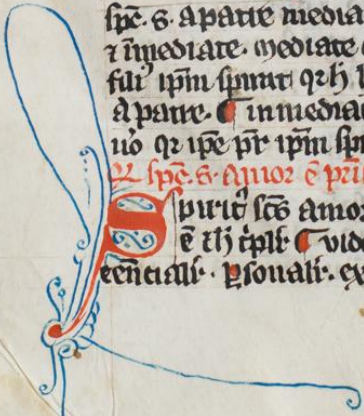 spc̄. s. a patre media
⁊ īmediate. mediate
fili᷒ ip̄m spirat qꝛ h
a patre. ¶ inmedia
uo qꝛ ipe pr̄ ip̄m sp
Qꝛ spc̄. s. amor ē pri
Spirit᷒ scs̄ amor
ē th̄ tp̄lr ¶ vid
eēncialr. ꝑsonalr. ex